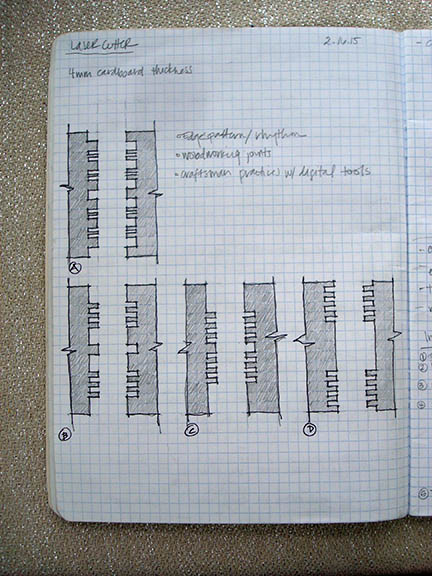 LASER CUTTER
2.16.15
4mm cardboard thickness
• Edge pattern / rhythm
• woodworking joints
• craftsman practices w/ digital tools
A
B
C
D